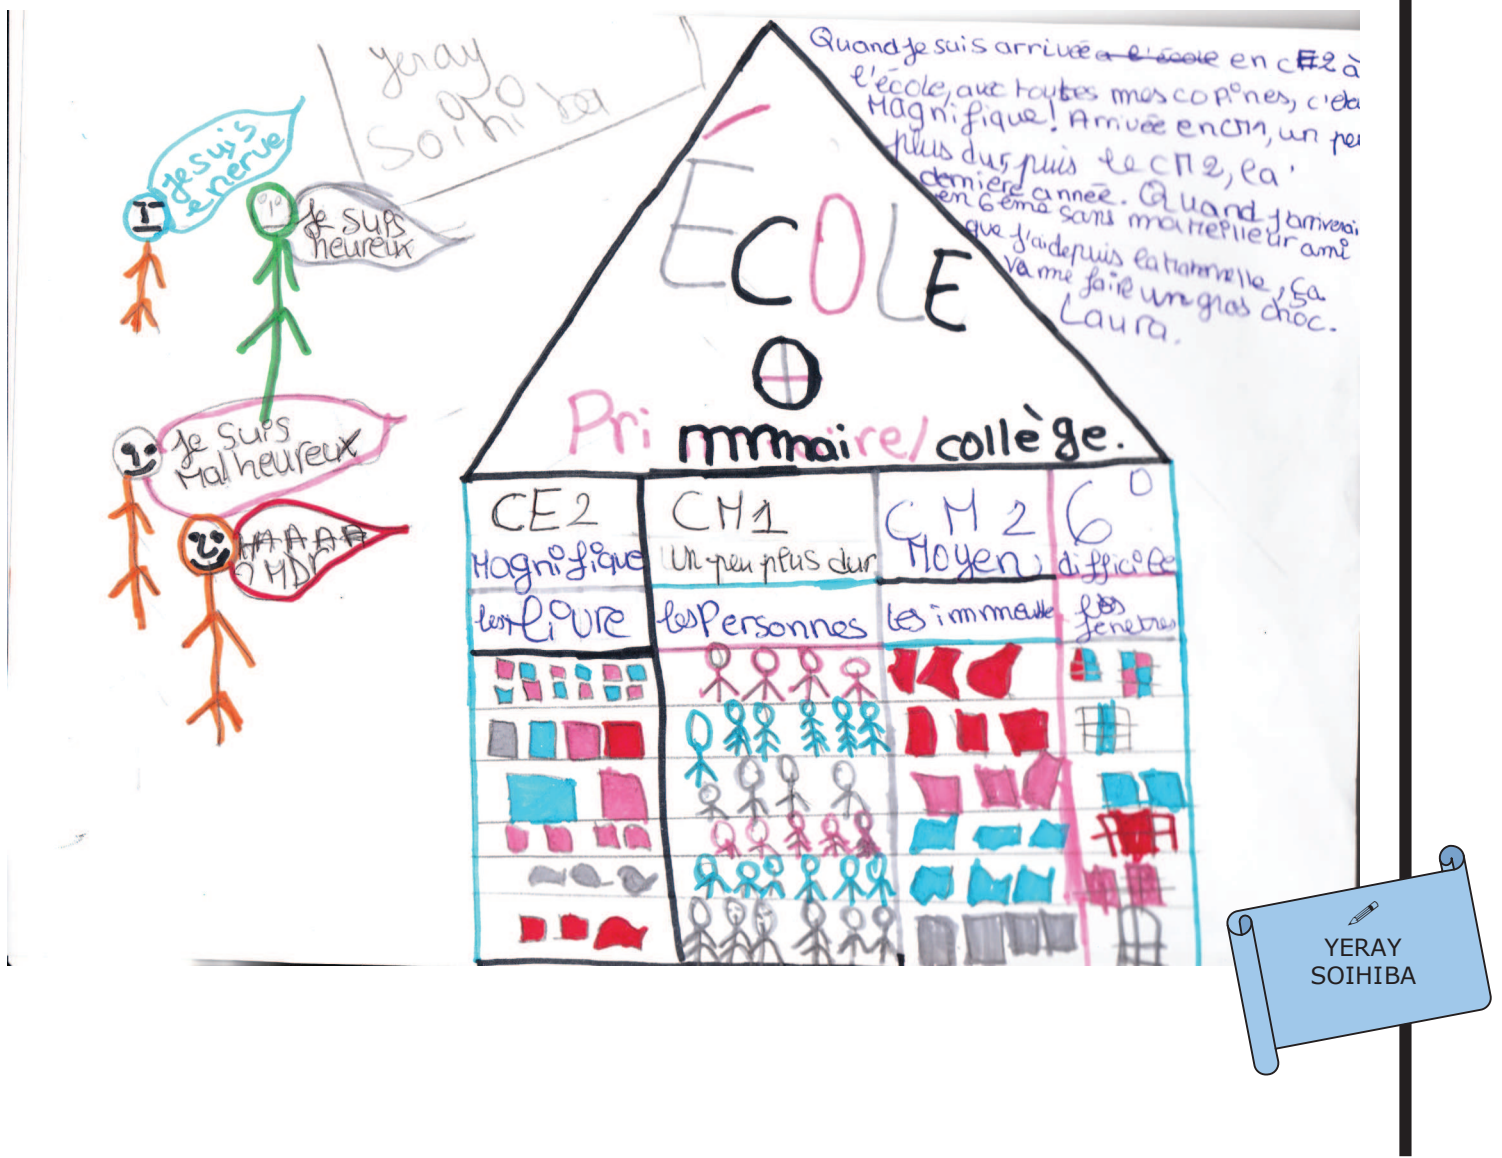 yeray
Soihiba
Je suis
enerve
Je suis
heureux
Je suis
Malheureux
HAAAA
MDr
Quand je suis arrivée a l'école en cE2 à
l'école, avec toutes mes copines, c'éta
Magnifique! Arrivée en cm1, un peu
plus dur, puis le cM2, la
dernière année. Quand j'arriverai
en 6ème sans mon meilleur ami
que j'ai depuis la maternelle, ça
va me faire un gros choc.
Laura.
ÉCOLE
Primmmaire/collège.
CE2
Magnifique
CM1
Un peu plus dur
CM2
Moyen
6°
difficile
les livre
les Personnes
les immeuble
les fenetres
YERAY
SOIHIBA